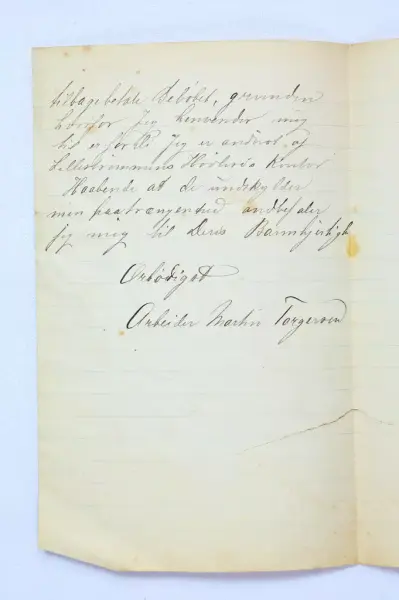 tilbagebetale Beløbet, grunden
hvorfor Jeg henvender mig
til er fordi Jeg er andvist, af
Kontor
Haabende at de undskylder
min paatrængenhed andbefaler
jeg mig til Deres Barmhjertigh
Ærbødigst
Arbeider Martin Torgersen